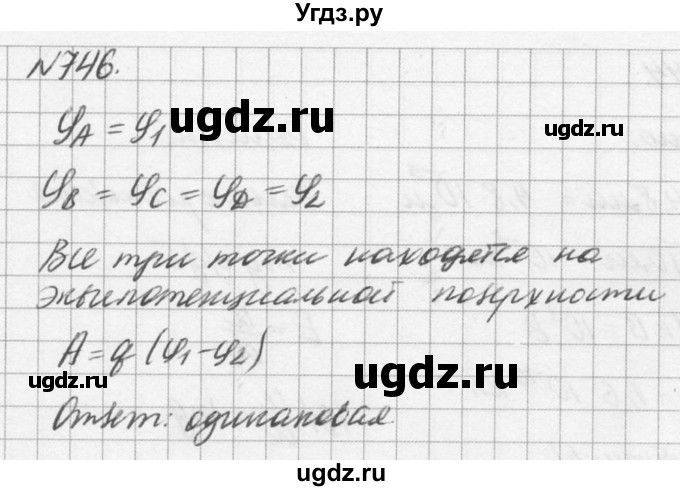 Угдз.ру
№746.
φA = φ1
ugdz.ru
ugdz.ru
φB = φC = φD = φ2
Все три точки находятся на
эквипотенциальной поверхности
A = q (φ1 - φ2)
ugdz.ru
ugdz.ru
Ответ: одинаковая.
ugdz.ru